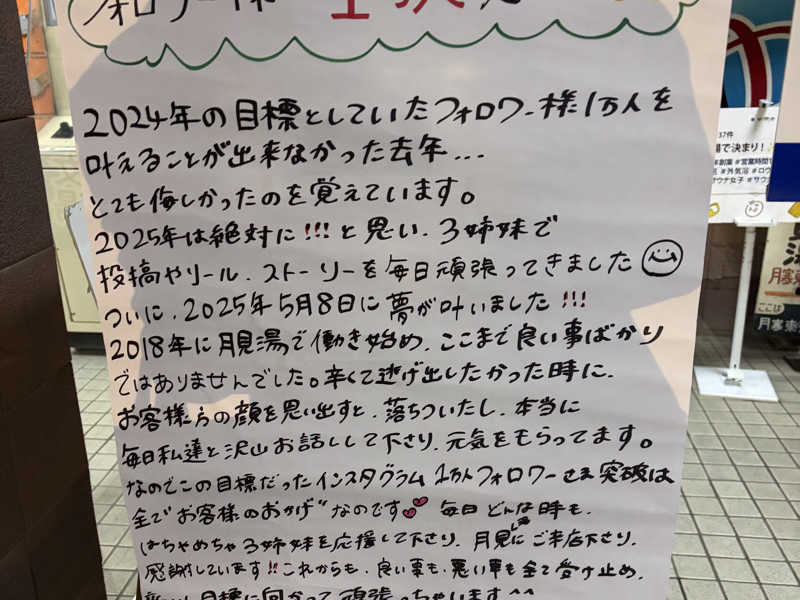 フォロワー様
2024年の目標としていたフォロワー様1万人を
叶えることが出来なかった去年...
とても悔しかったのを覚えています。
2025年は絶対に!!!と思い、3姉妹で
投稿やリール、ストーリーを毎日頑張ってきました
ついに、2025年5月8日に夢が叶いました!!!
2018年に月見湯で働き始め、ここまで良い事ばかり
ではありませんでした。辛くて逃げ出したかった時に、
お客様方の顔を思い出すと、落ちついたし、本当に
毎日私達と沢山お話しして下さり、元気をもらってます。
なのでこの目標だったインスタグラム1万人フォロワーさま突破は
全て"お客様のおかげ"なのです💕 毎日どんな時も、
はちゃめちゃ3姉妹を応援して下さり、月見湯にご来店下さり、
感謝しています!!これからも、良い事も、悪い事も全て受け止め、
新しい目標に向かって頑張っちゃいます^^
37件
場で決まり!
#創業 #営業時間
#外気浴 #ロウ
サウナ女子 #サウ
ここは